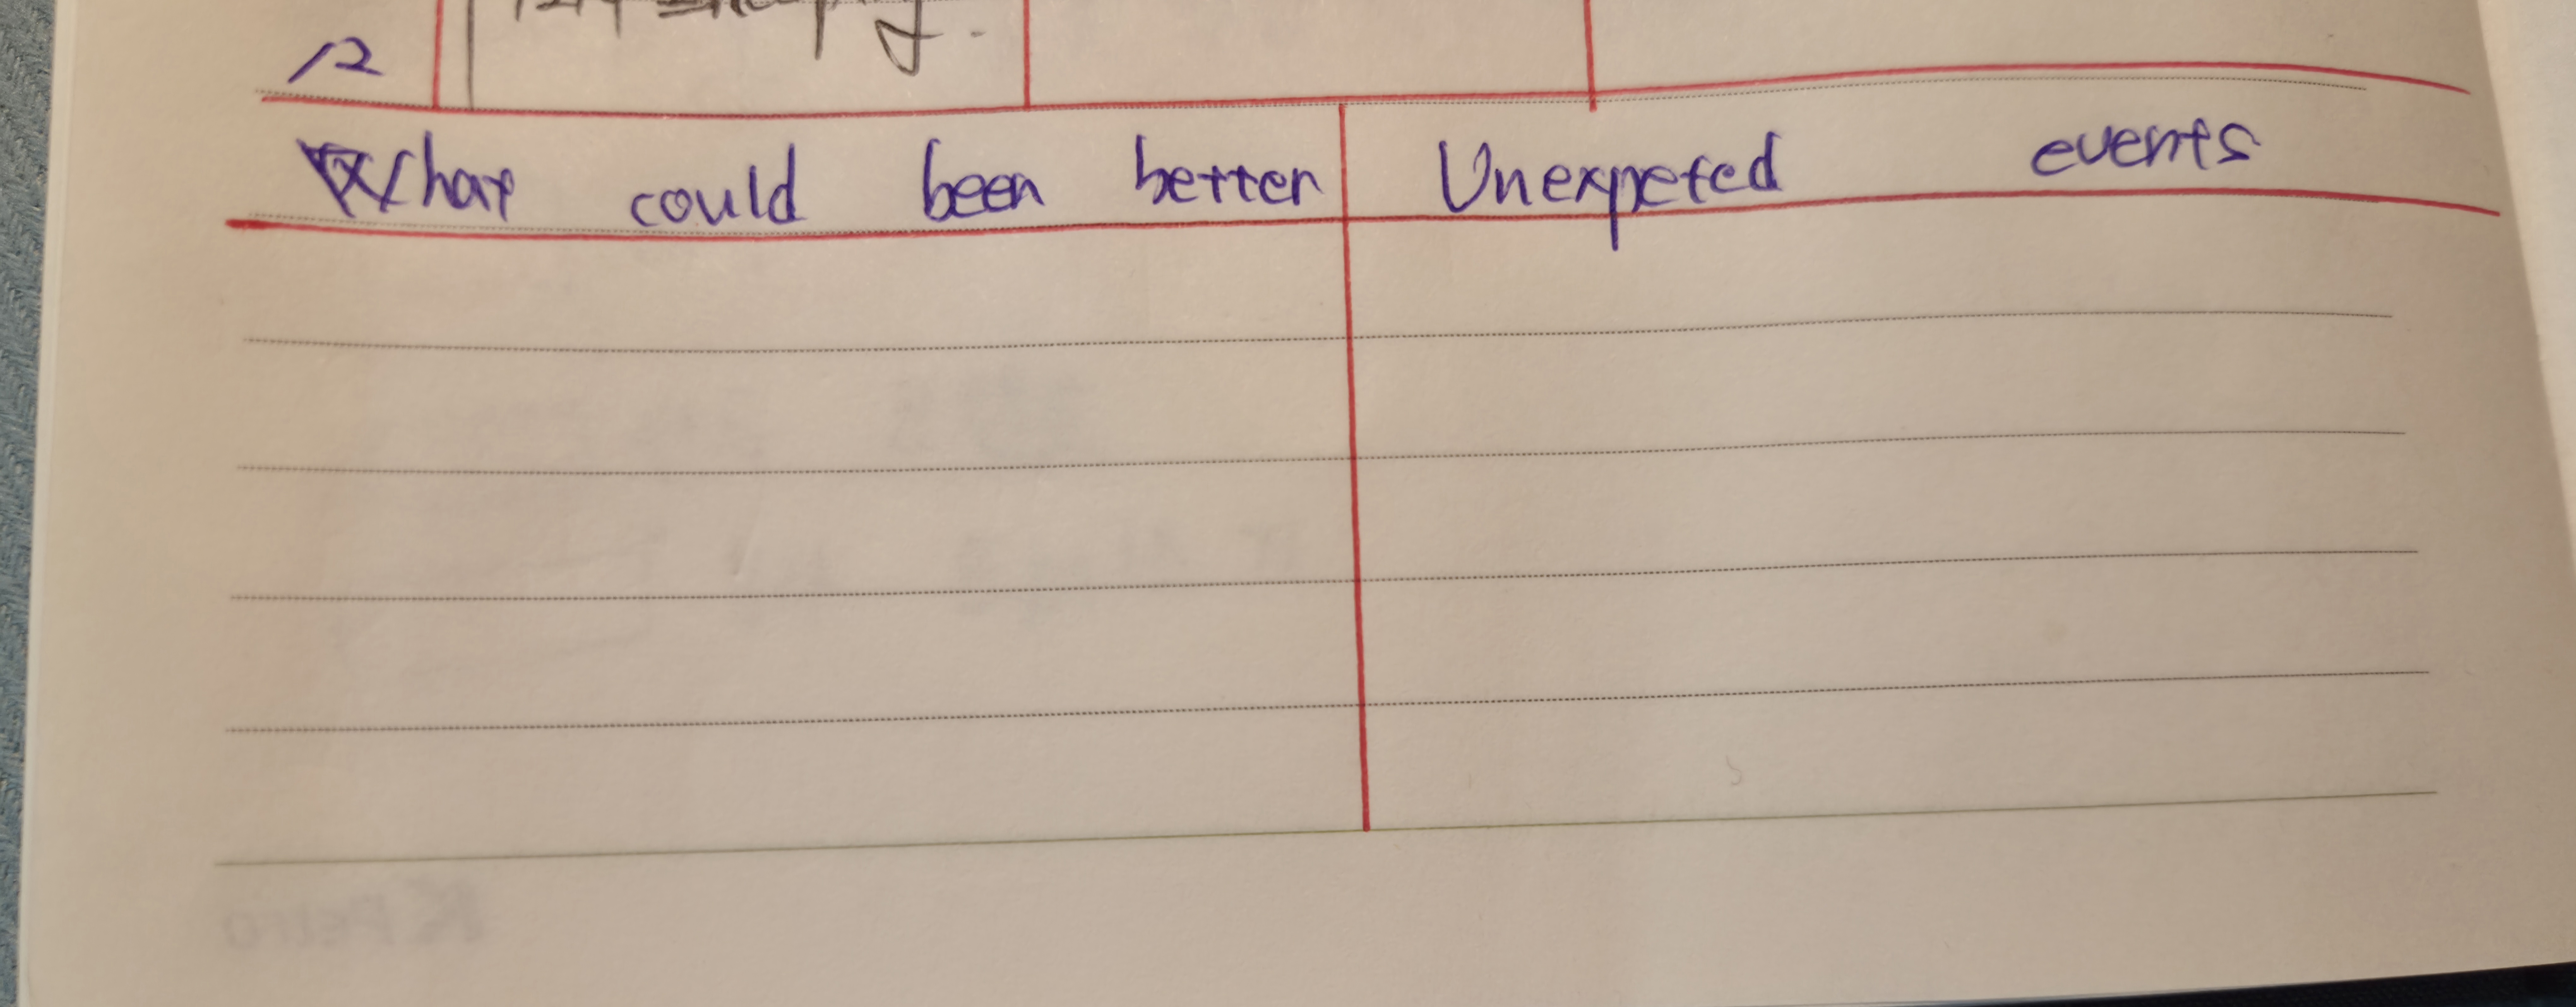 12
What could been better
Unexpeted events